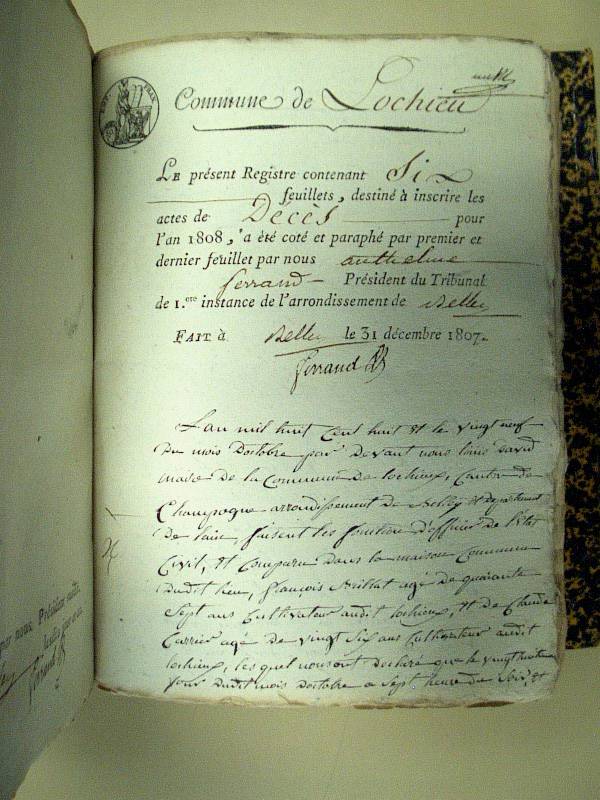 Commune de Lochieu
LE présent Registre contenant Six
feuillets, destiné à inscrire les
actes de Decès pour
l'an 1808, a été coté et paraphé par premier et
dernier feuillet par nous anthelme
ferrand Président du Tribunal
de 1.ere instance de l'arrondissement de Belley
FAIT à Belley le 31 décembre 1807.
ferrand
L'an mil huit Cent huit & le vingt neuf
du mois Doctobre par devant nous louis
maire de la Commune de lochieux, Canton de
Champagne arrondissement de Belley & departement
de lain, faisant les fonction d'officier de l'état
Civil, & Comparu dans la maison Commune
dudit lieu, françois agé de quarante
Sept ans Cultivateur audit lochieux, & de Claude
Carrier agé de vingt Six ans Cultivateur audit
lochieux, les quel nous ont déclaré que le vingt huitieme
Jour dudit mois Doctobre a Sept heure du Soir, &
par nous, Président
ferrand